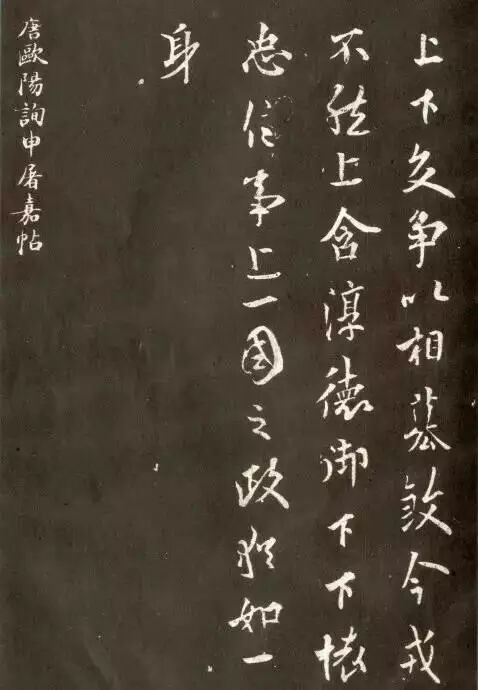 上下交争以相篡今戎
不然上含淳德御下下懷
忠信事上一國之政猶如一
身
唐歐陽詢申屠嘉帖